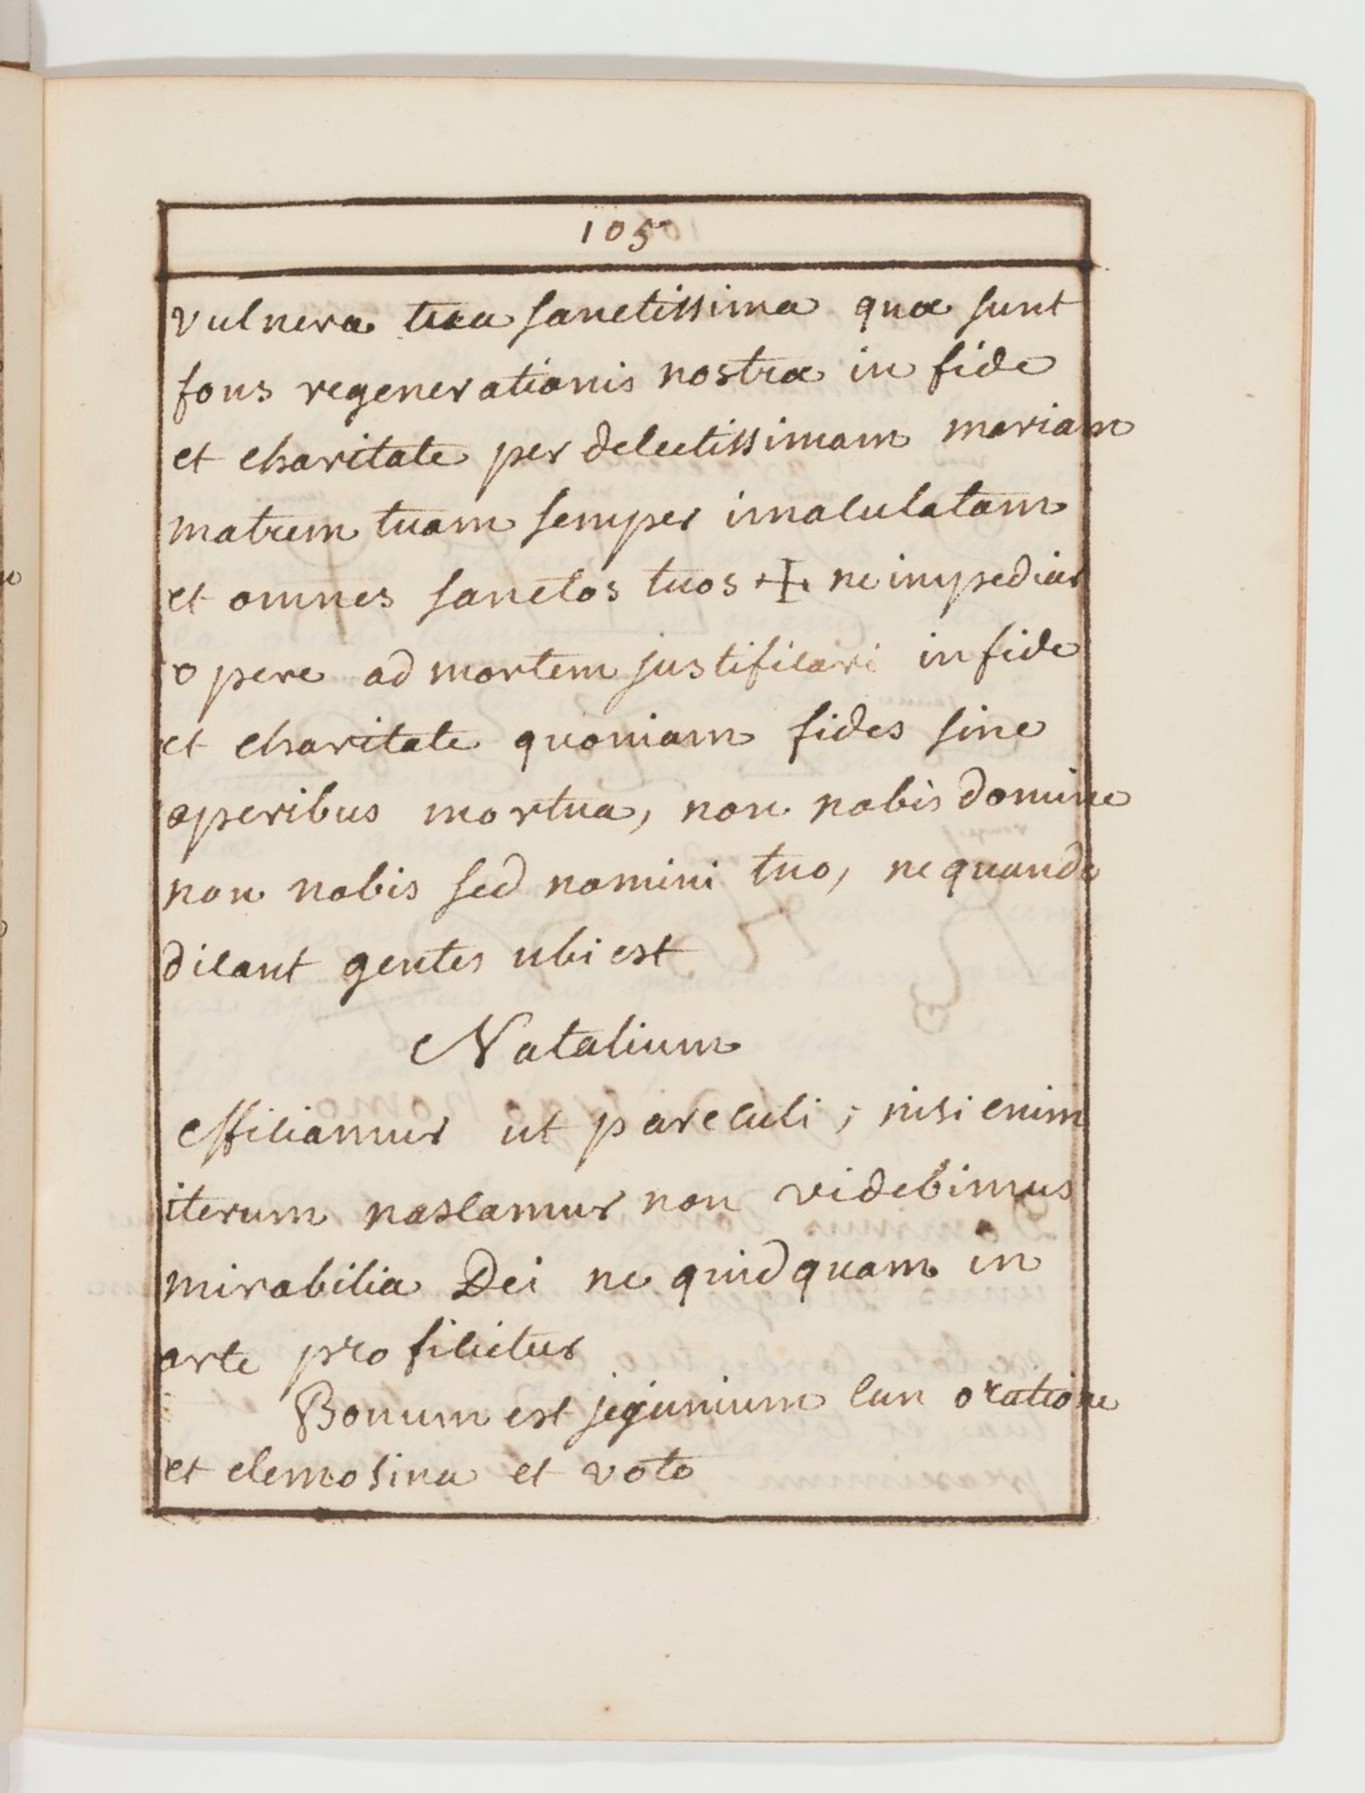 105
vulnera tua sanctissima quæ sunt
fons regenerationis nostræ in fide
et charitate per delectissimam mariam
matrem tuam semper imaculatam
et omnes sanctos tuos ✠ ne impediar
opere ad mortem justificari in fide
et charitate quoniam fides sine
operibus mortua, non nobis domine
non nobis sed nomini tuo, ne quando
dicant gentes ubi est
Natalium
efficiamur ut parculi; nisi enim
iterum nascamur non videbimus
mirabilia Dei ne quidquam in
arte proficitur
Bonum est jejunium cun oratione
et elemosina et voto